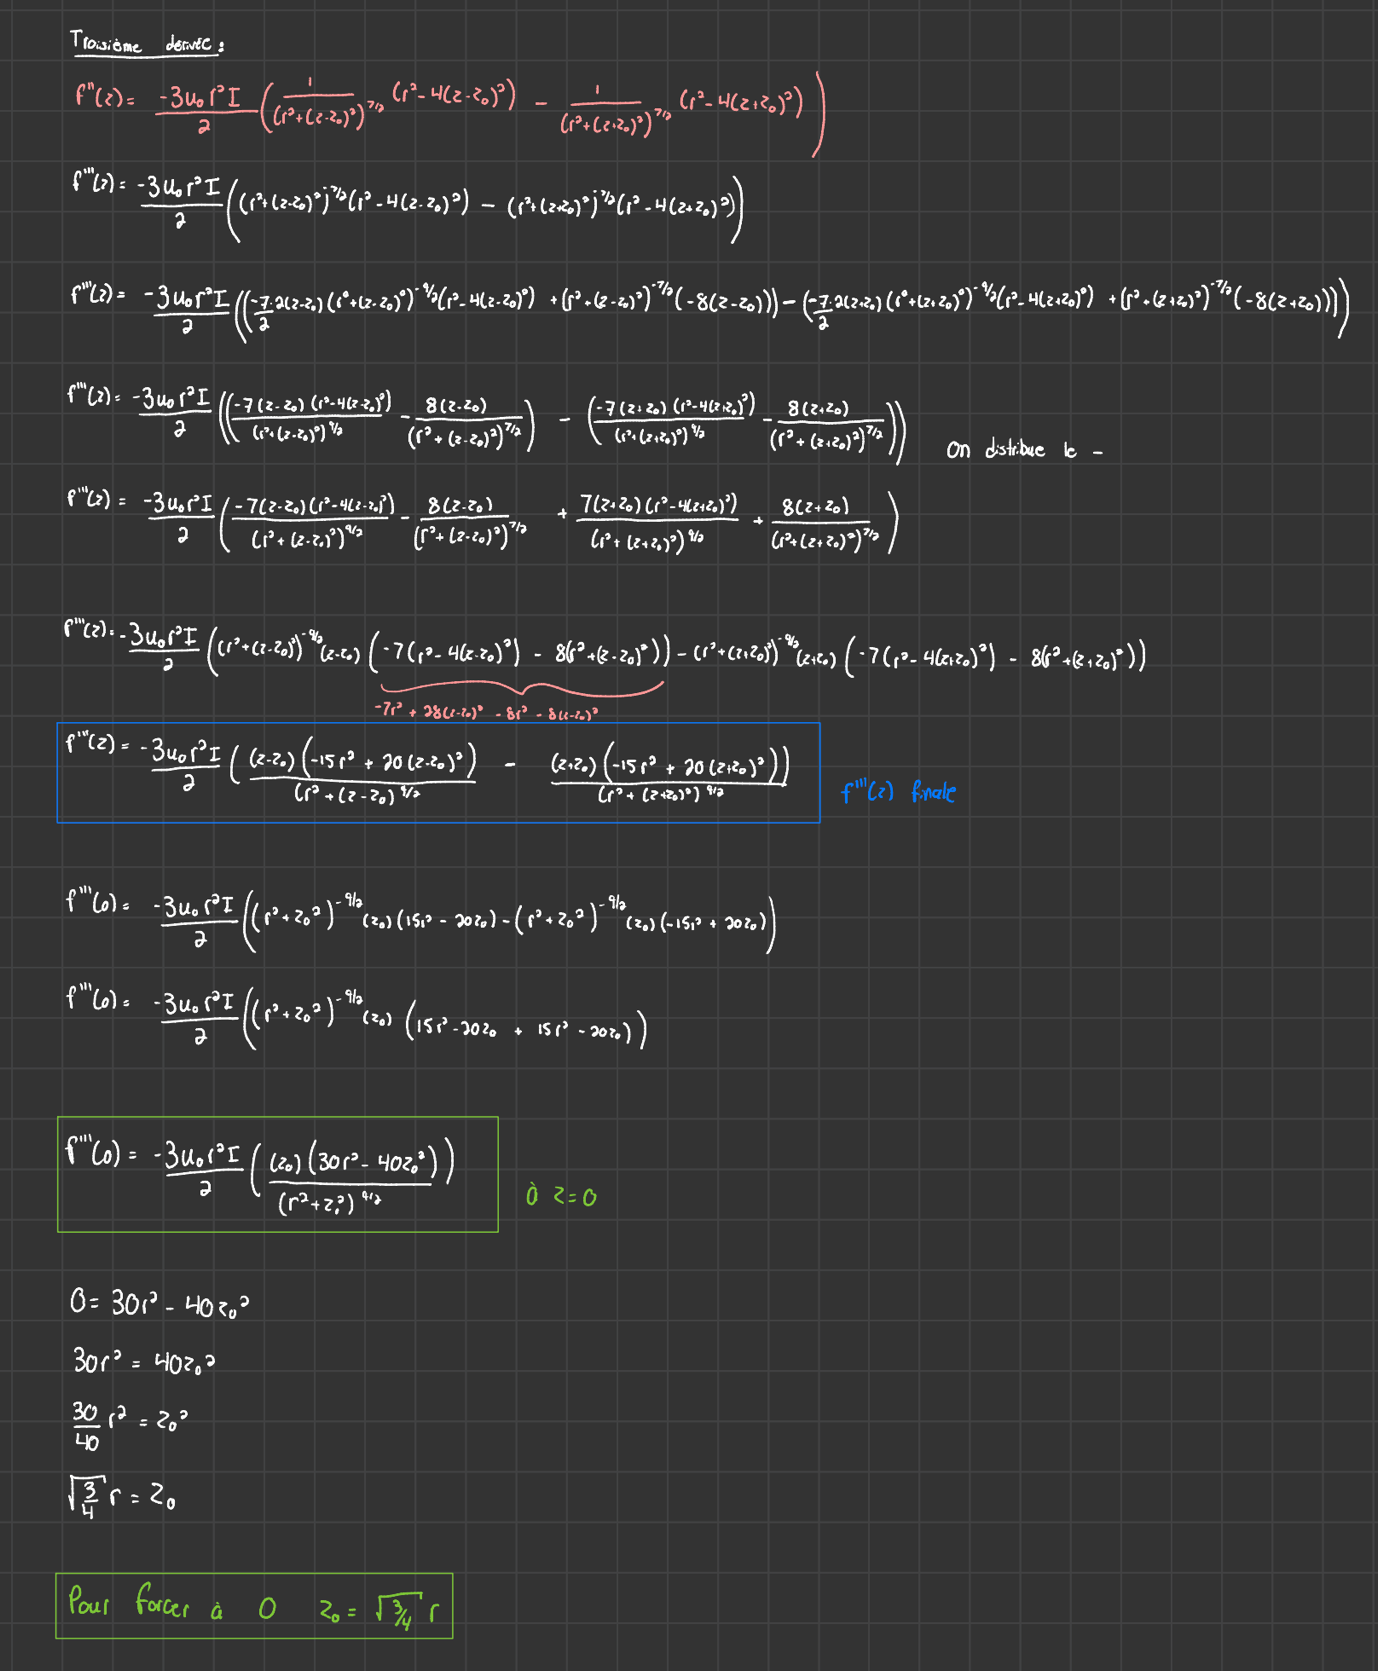 Troisième dérivée :
f''(z) = -3u₀r²I/2 ( 1/(r²+(z-z₀)²)^7/2 (r²-4(z-z₀)²) - 1/(r²+(z+z₀)²)^7/2 (r²-4(z+z₀)²) )
f'''(z) = -3u₀r²I/2 ( (r²+(z-z₀)²)^-7/2 (r²-4(z-z₀)²) - (r²+(z+z₀)²)^-7/2 (r²-4(z+z₀)²) )
f'''(z) = -3u₀r²I/2 ( ( -7/2·2(z-z₀)(r²+(z-z₀)²)^-9/2 (r²-4(z-z₀)²) + (r²+(z-z₀)²)^-7/2 (-8(z-z₀)) ) - ( -7/2·2(z+z₀)(r²+(z+z₀)²)^-9/2 (r²-4(z+z₀)²) + (r²+(z+z₀)²)^-7/2 (-8(z+z₀)) ) )
f'''(z) = -3u₀r²I/2 ( ( -7(z-z₀)(r²-4(z-z₀)²)/(r²+(z-z₀)²)^9/2 - 8(z-z₀)/(r²+(z-z₀)²)^7/2 ) - ( -7(z+z₀)(r²-4(z+z₀)²)/(r²+(z+z₀)²)^9/2 - 8(z+z₀)/(r²+(z+z₀)²)^7/2 ) )
On distribue le -
f'''(z) = -3u₀r²I/2 ( -7(z-z₀)(r²-4(z-z₀)²)/(r²+(z-z₀)²)^9/2 - 8(z-z₀)/(r²+(z-z₀)²)^7/2 + 7(z+z₀)(r²-4(z+z₀)²)/(r²+(z+z₀)²)^9/2 + 8(z+z₀)/(r²+(z+z₀)²)^7/2 )
f'''(z) = -3u₀r²I/2 ( (r²+(z-z₀)²)^-9/2 (z-z₀) ( -7(r²-4(z-z₀)²) - 8(r²+(z-z₀)²) ) - (r²+(z+z₀)²)^-9/2 (z+z₀) ( -7(r²-4(z+z₀)²) - 8(r²+(z+z₀)²) ) )
-7r² + 28(z-z₀)² - 8r² - 8(z-z₀)²
f'''(z) = -3u₀r²I/2 ( (z-z₀)(-15r² + 20(z-z₀)²)/(r²+(z-z₀)^9/2 - (z+z₀)(-15r² + 20(z+z₀)²)/(r²+(z+z₀)²)^9/2 )
f'''(z) finale
f'''(0) = -3u₀r²I/2 ( (r²+z₀²)^-9/2 (z₀)(15r² - 20z₀) - (r²+z₀²)^-9/2 (z₀)(-15r² + 20z₀) )
f'''(0) = -3u₀r²I/2 ( (r²+z₀²)^-9/2 (z₀) (15r² - 20z₀ + 15r² - 20z₀) )
f'''(0) = -3u₀r²I/2 ( (z₀)(30r² - 40z₀²)/(r²+z₀²)^9/2 )
à z=0
0 = 30r² - 40z₀²
30r² = 40z₀²
30/40 r² = z₀²
√(3/4) r = z₀
Pour forcer à 0 z₀ = √(3/4) r